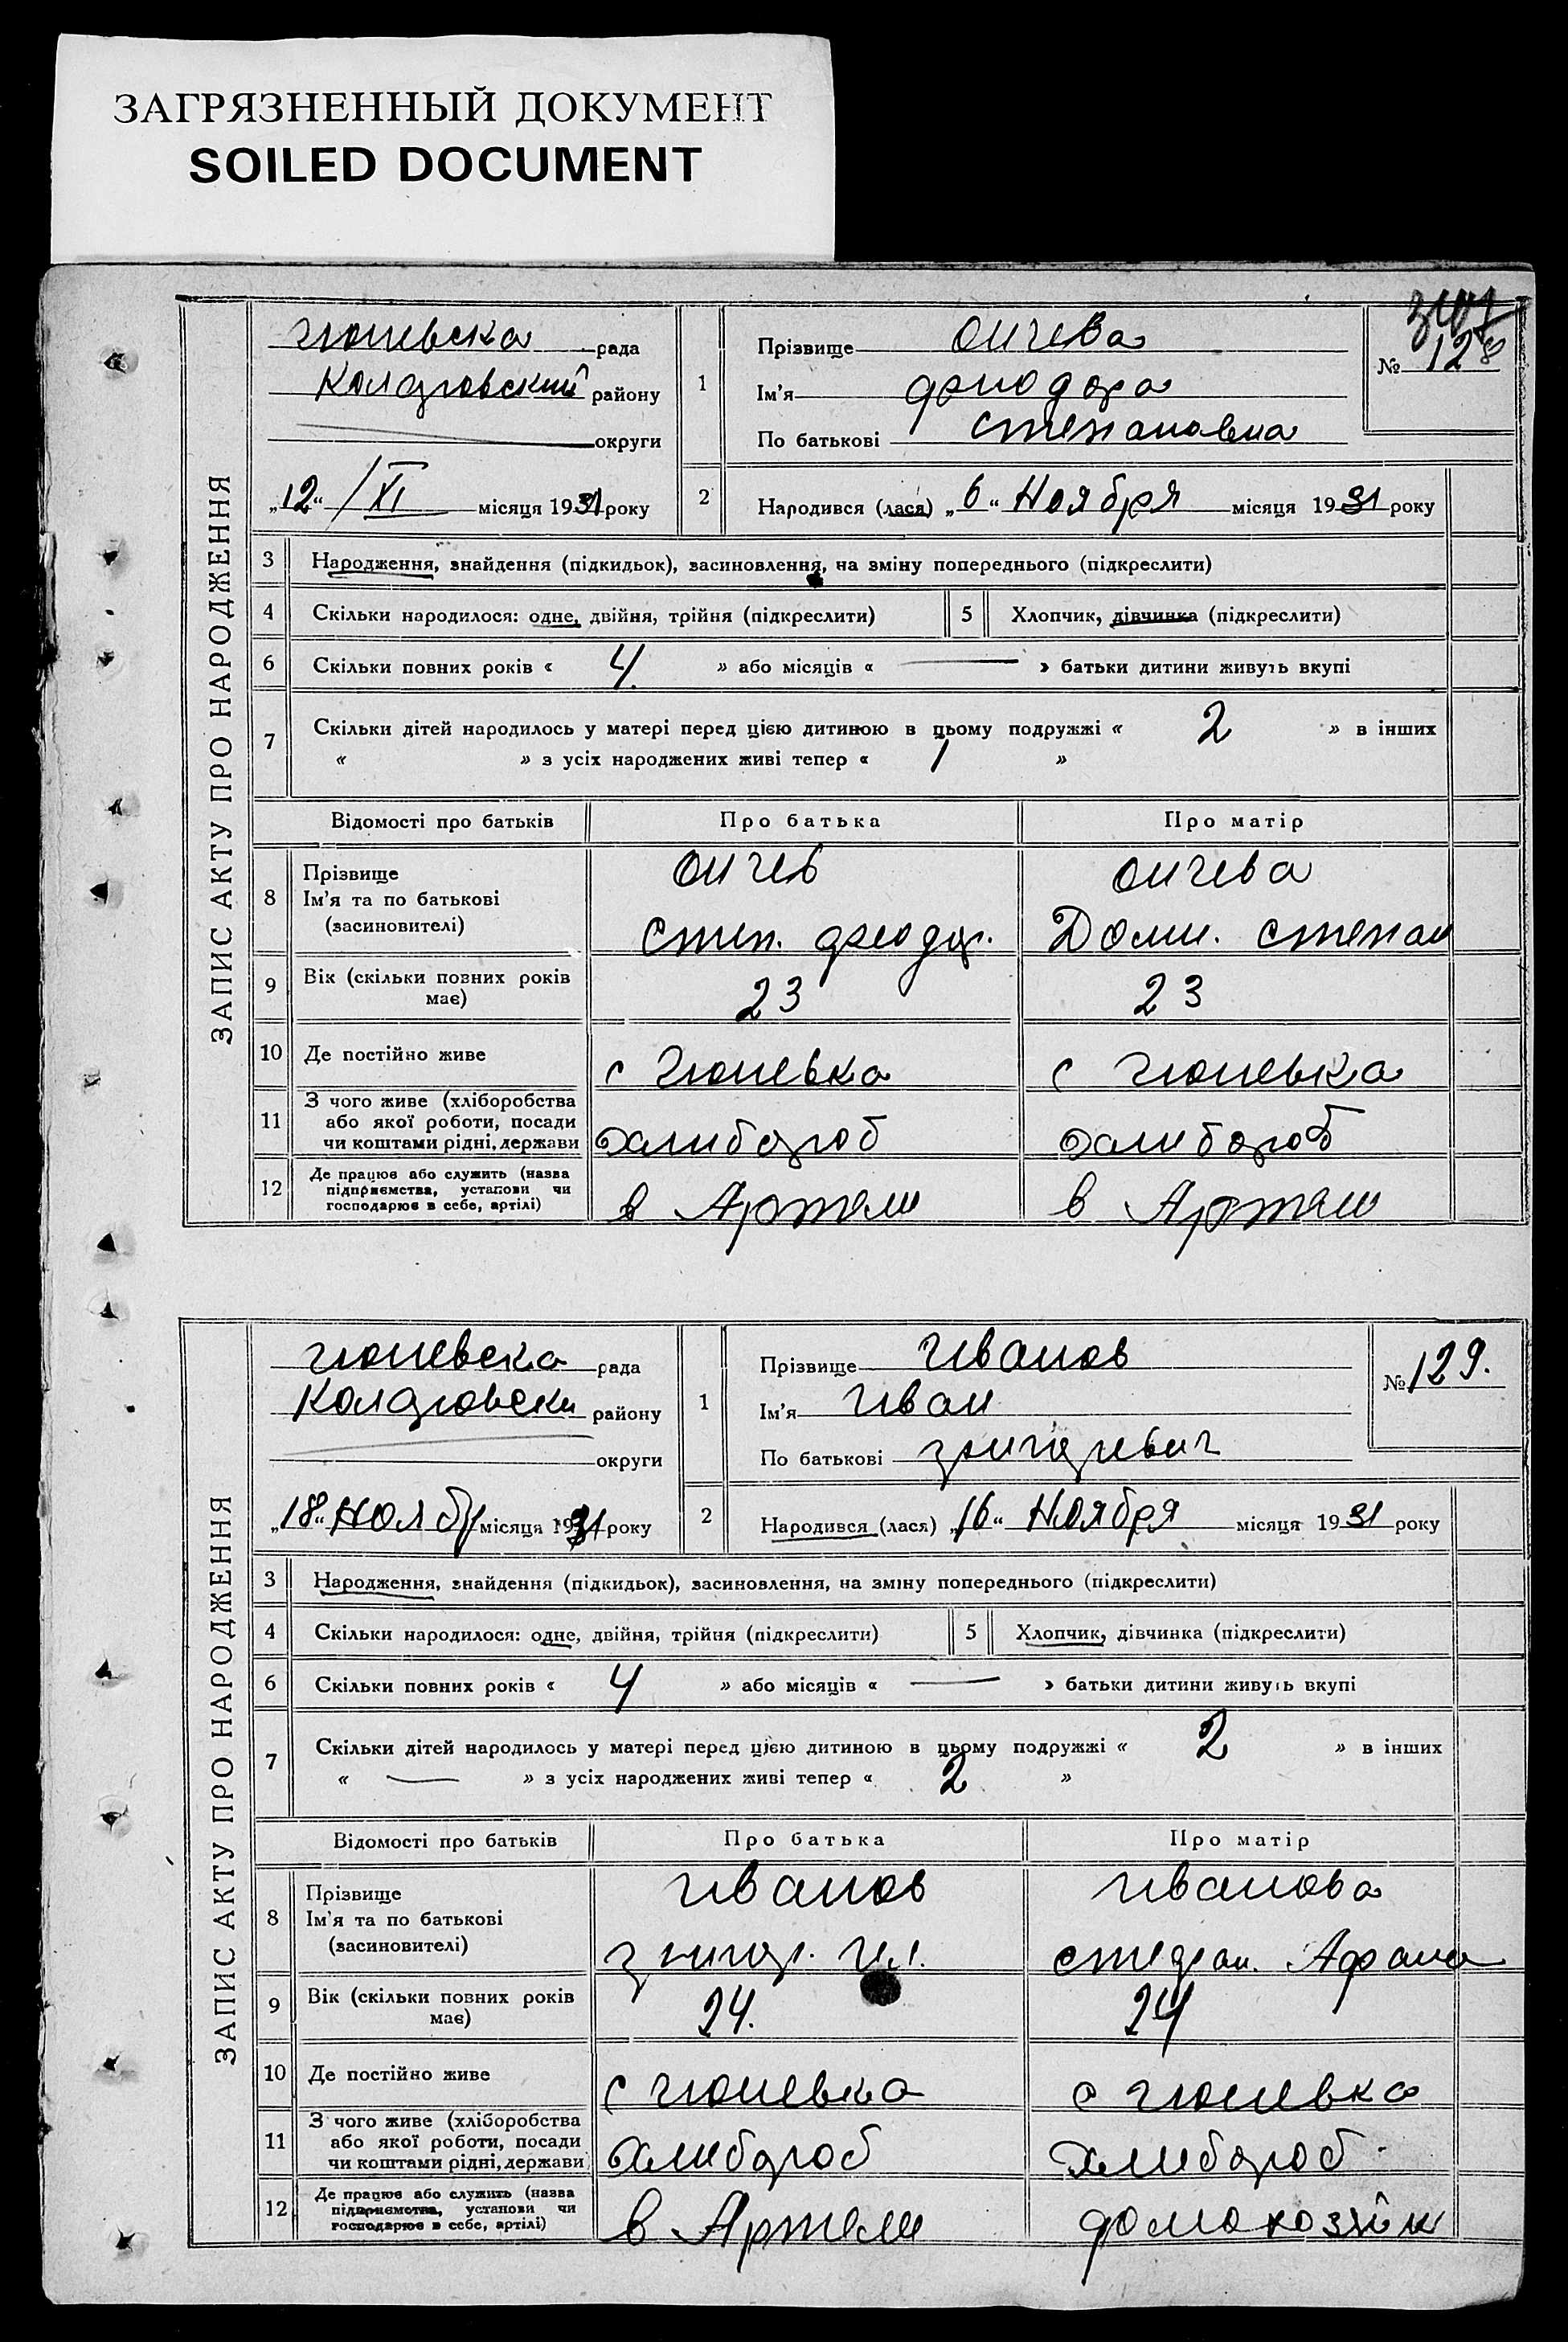 ЗАГРЯЗНЕННЫЙ ДОКУМЕНТ
SOILED DOCUMENT
ЗАПИС АКТУ ПРО НАРОДЖЕННЯ
гюневска рада
району
округи
„12“ /XI місяця 1931 року
1
Прізвище Ончева
Ім'я Феодора
По батькові Степановна
№ 128
2
Народився (лася) „6“ Ноября місяця 1931 року
3 Народження, знайдення (підкидьок), засиновлення, на зміну попереднього (підкреслити)
4 Скільки народилося: одне, двійня, трійня (підкреслити) 5 Хлопчик, дівчинка (підкреслити)
6 Скільки повних років « 4 » або місяців « — » батьки дитини живуть вкупі
7 Скільки дітей народилось у матері перед цією дитиною в цьому подружжі « 2 » в інших
« » з усіх народжених живі тепер « 1 »
Відомості про батьків Про батька Про матір
8 Прізвище
Ім'я та по батькові
(засиновителі)
Ончев
Степ. Феодор.
Ончева
Домн. Степан
9 Вік (скільки повних років має) 23 23
10 Де постійно живе с гюневка с гюневка
11 З чого живе (хліборобства
або якої роботи, посади
чи коштами рідні, держави
хлибороб хлибороб
12 Де працює або служить (назва
підприємства, установи чи
господарює в себе, артілі)
в Артели в Артели
ЗАПИС АКТУ ПРО НАРОДЖЕННЯ
гюневска рада
району
округи
„18“ Ноябр місяця 1931 року
1
Прізвище Иванов
Ім'я Иван
По батькові григоревич
№ 129.
2
Народився (лася) „16“ Ноября місяця 1931 року
3 Народження, знайдення (підкидьок), засиновлення, на зміну попереднього (підкреслити)
4 Скільки народилося: одне, двійня, трійня (підкреслити) 5 Хлопчик, дівчинка (підкреслити)
6 Скільки повних років « 4 » або місяців « — » батьки дитини живуть вкупі
7 Скільки дітей народилось у матері перед цією дитиною в цьому подружжі « 2 » в інших
« — » з усіх народжених живі тепер « 2 »
Відомості про батьків Про батька Про матір
8 Прізвище
Ім'я та по батькові
(засиновителі)
Иванов
григор. Ил.
Иванова
Стефан. Афана
9 Вік (скільки повних років має) 24. 24
10 Де постійно живе с гюневка с гюневка
11 З чого живе (хліборобства
або якої роботи, посади
чи коштами рідні, держави
хлибороб хлибороб
12 Де працює або служить (назва
підприємства, установи чи
господарює в себе, артілі)
в Артели домохозяйк